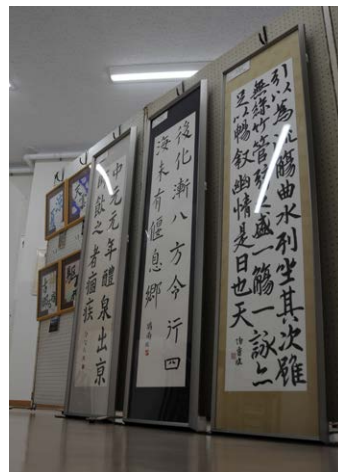 引以為流觴曲水列坐其次雖
無絲竹管弦之盛一觴一詠亦
足以暢叙幽情是日也天
後化漸八方令行四
海未有偃息郷
中元元年醴泉出京
飲之者痼疾